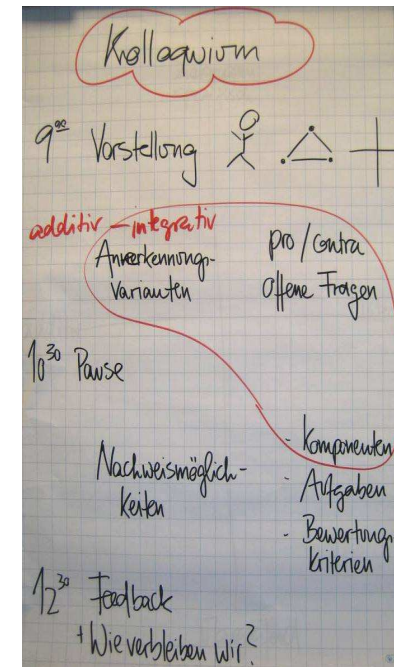 Kolloquium
9⁰⁰ Vorstellung
additiv – integrativ
Anerkennungs-
varianten
pro / contra
offene Fragen
10³⁰ Pause
Nachweismöglich-
keiten
- Komponenten
- Aufgaben
- Bewertungs
kriterien
12³⁰ Feedback
+ Wie verbleiben wir?